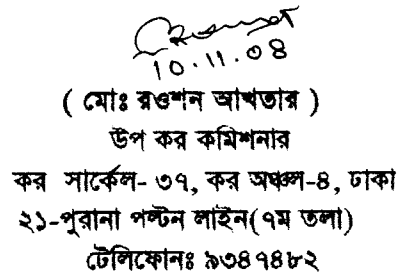 10.11.08
( মোঃ রওশন আখতার )
উপ কর কমিশনার
কর সার্কেল- ৩৭, কর অঞ্চল-৪, ঢাকা
২১-পুরানা পল্টন লাইন(৭ম তলা)
টেলিফোনঃ ৯৩৪৭৪৮২